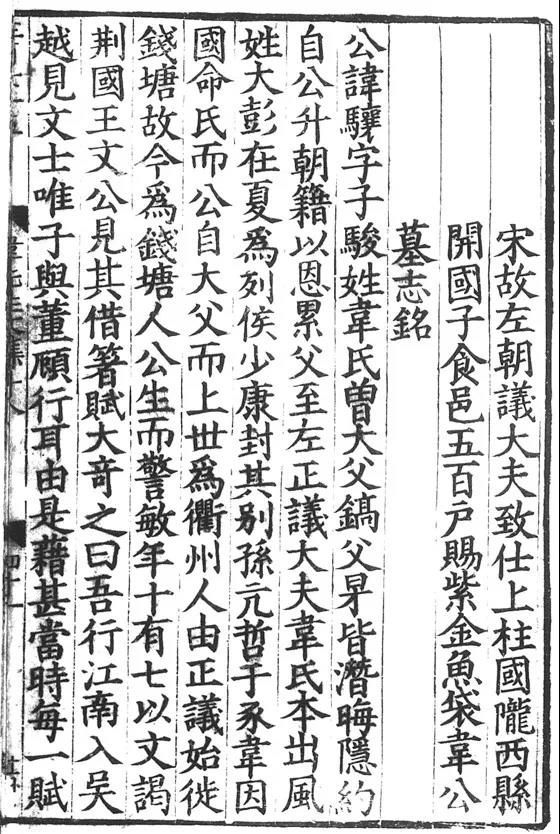 宋故左朝議大夫致仕上柱國隴西縣
開國子食邑五百戶賜紫金魚袋韋公
墓志銘
公諱驤字子駿姓韋氏曾大父鎬父皆潛晦隱約
自公升朝籍以恩累父至左正議大夫韋氏本出風
姓大彭在夏爲列侯少康封其别孫元哲于豕韋因
國命氏而公自大父而上世爲衢州人由正議始徙
錢塘故今爲錢塘人公生而警敏年十有七以文謁
荆國王文公見其借箸賦大奇之曰吾行江南入吳
越見文士唯子與董顧行耳由是藉甚當時每一賦